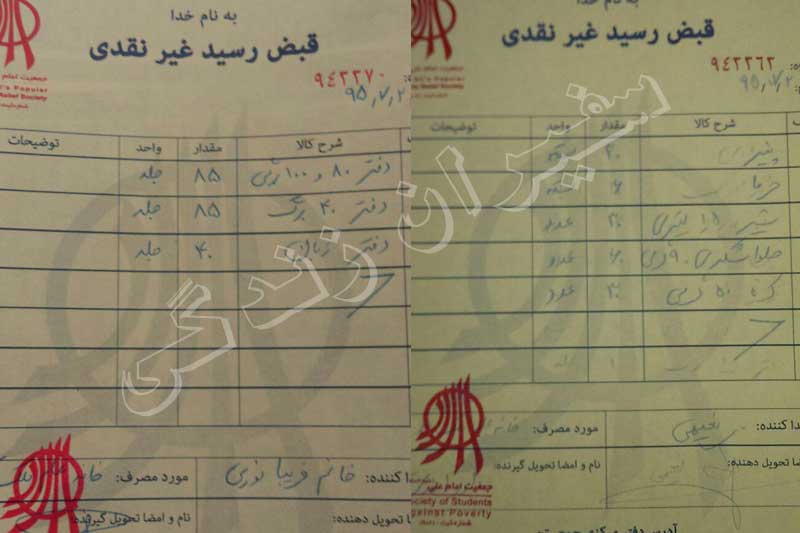 به نام خدا
قبض رسید غیر نقدی
۹۴۳۳۶۲
۹۵,۷,۲
شرح کالا مقدار واحد توضیحات
پنیر ۲۰
خرما
شیر لیتری ۲۰ عدد
حلوا شکری ۹۰ گرمی ۶۰ عدد
کره ۵۰ گرمی ۲۰ عدد
اهدا کننده: نعیمی مورد مصرف:
تحویل دهنده: نام و امضا تحویل گیرنده:
جمعیت امام علی
Society of Students
Against Poverty
به نام خدا
قبض رسید غیر نقدی
جمعیت امام
Popular
Relief Society
۹۴۳۳۷۰
۹۵,۷,۲
شرح کالا مقدار واحد توضیحات
دفتر ۸۰ و ۱۰۰ برگ ۸۵ جلد
دفتر ۴۰ برگ ۸۵ جلد
دفتر زبان ۴۰ جلد
اهدا کننده: خانم فریبا نوری مورد مصرف: خانه
تحویل دهنده: نام و امضا تحویل گیرنده:
سفیران زندگی